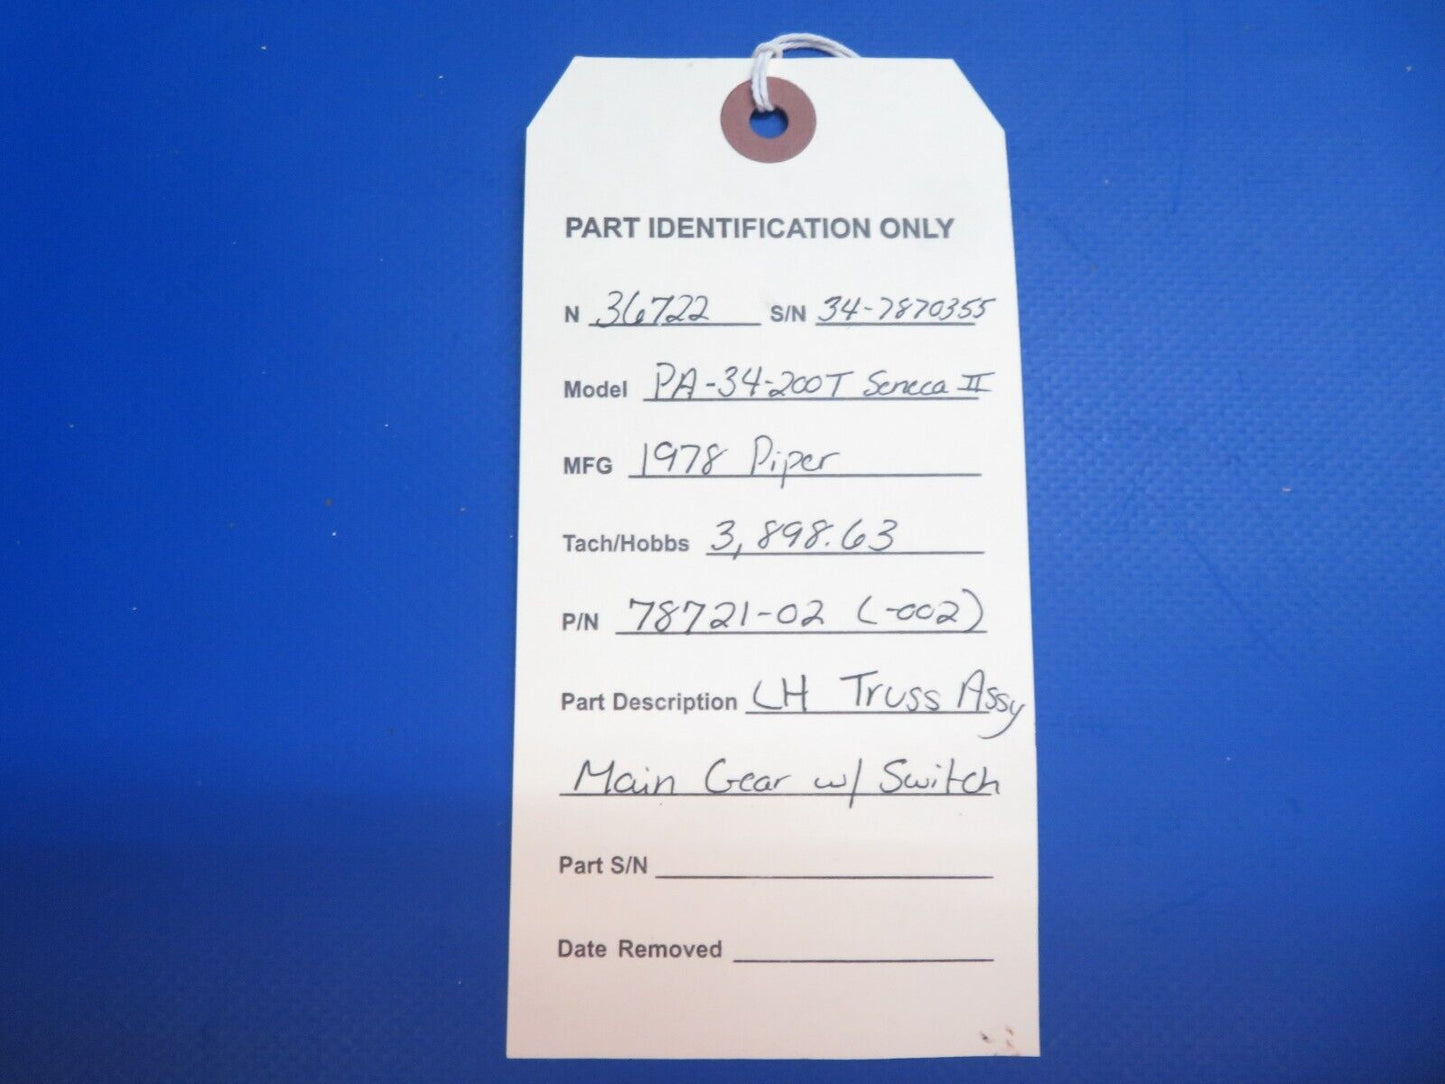 PART IDENTIFICATION ONLY
N 36722 S/N 34-7870355
Model PA-34-200T Seneca II
MFG 1978 Piper
Tach/Hobbs 3,898.63
P/N 78721-02 (-002)
Part Description LH Truss Assy
Main Gear w/ Switch
Part S/N
Date Removed